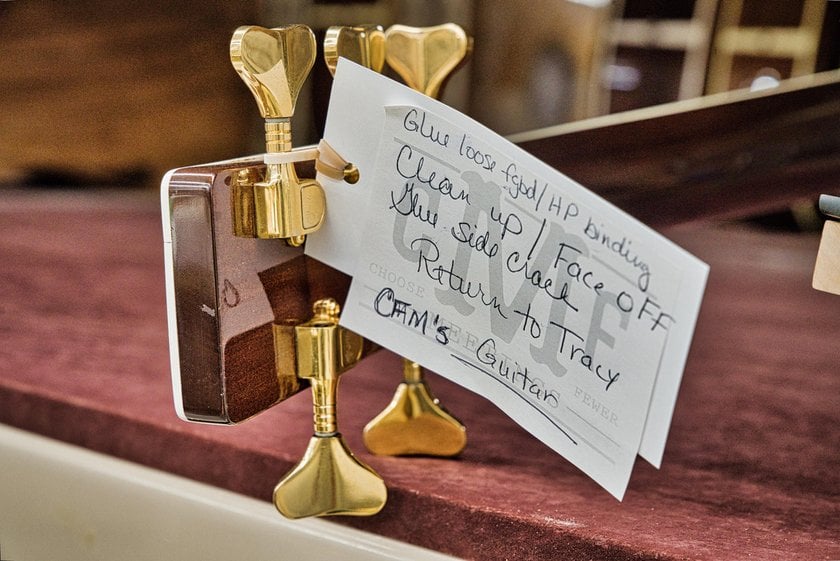 Glue loose fgbd/HP binding
Clean up / Face OFF
Glue side crack
Return to Tracy
CFM's Guitar
CMF
CHOOSE
FEWER